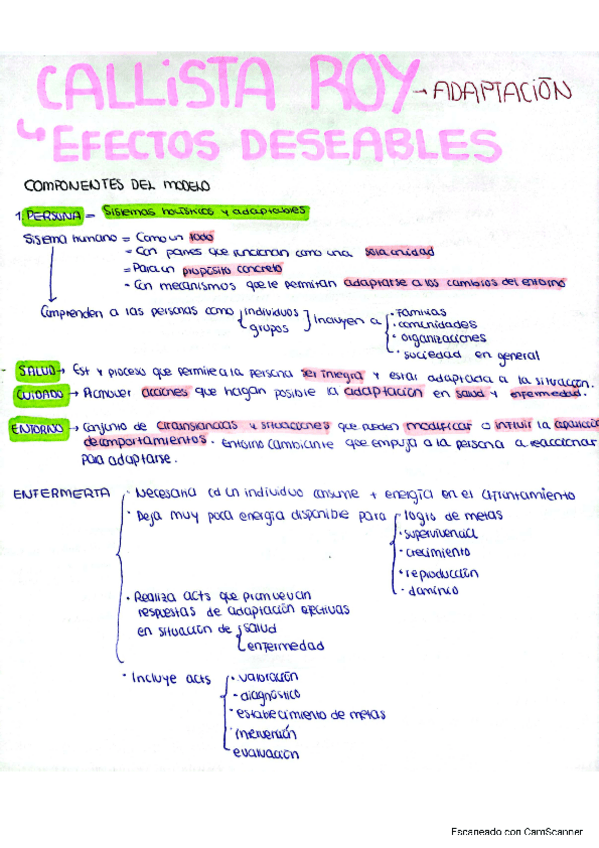 CALLISTA ROY → ADAPTACIÓN
↳ EFECTOS DESEABLES
COMPONENTES DEL MODELO
1. PERSONA = Sistemas holísticos y adaptables
Sistema humano = Como un todo
= Con partes que funcionan como una sola unidad
= Para un propósito concreto
- Con mecanismos que le permitan adaptarse a los cambios del entorno
Comprenden a las personas como individuos grupos Incluyen a · Familias
· comunidades
· organizaciones
· sociedad en general
- SALUD → Est y proceso que permite a la persona ser íntegra y estar adaptada a la situación.
CUIDADO → Promover acciones que hagan posible la adaptación en salud y enfermedad.
ENTORNO → Conjunto de circunstancias y situaciones que pueden modificar o influir la
de comportamientos. Entorno cambiante que empuja a la persona a reaccionar
para adaptarse.
ENFERMERÍA · Necesaria cd un individuo consume + energía en el afrontamiento
· Deja muy poca energía disponible para · logro de metas
· supervivencia
· crecimiento
· reproducción
· dominio
· Realiza acts que promuevan
respuestas de adaptación efectivas
en situación de salud
enfermedad
· Incluye acts · valoración
· diagnóstico
· establecimiento de metas
· intervención
· evaluación
Escaneado con CamScanner